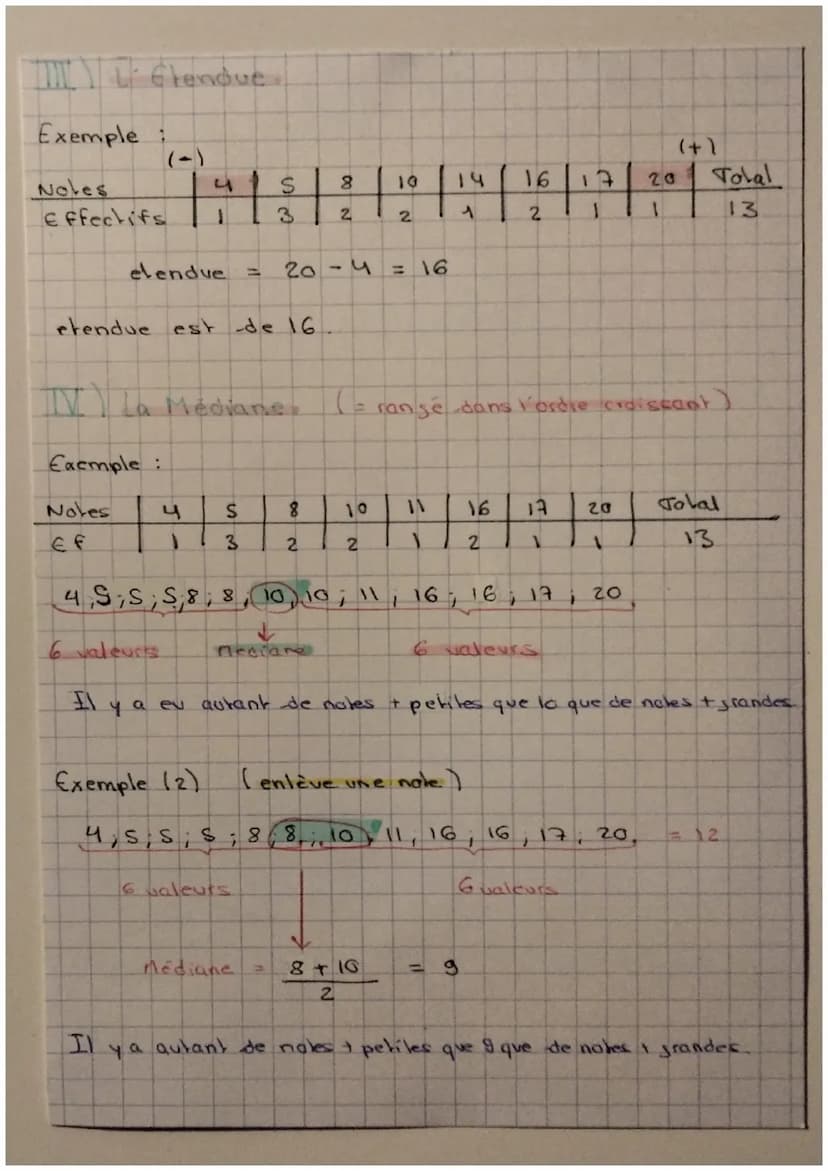 III) L'Étendue.
Exemple :
(-) (+)
Notes 4 5 8 10 14 16 17 20 Total
Effectifs 1 3 2 2 1 2 1 1 13
etendue = 20 - 4 = 16
etendue est de 16.
IV) La Médiane. (= rangé dans l'ordre croissant)
Exemple :
Notes 4 5 8 10 11 16 17 20 Total
Ef 1 3 2 2 1 2 1 1 13
4 ; 5 ; 5 ; 5 ; 8 ; 8 ; 10 ; 10 ; 11 ; 16 ; 16 ; 17 ; 20
6 valeurs médiane 6 valeurs
Il y a eu autant de notes + petites que 10 que de notes + grandes
Exemple (2) (enlève une note)
4 ; 5 ; 5 ; 5 ; 8 ; 8 ; 10 ; 11, 16 ; 16 ; 17 ; 20. = 12
6 valeurs 6 valeurs
Médiane = 8 + 10 = 9
2
Il y a autant de notes + petites que 9 que de notes + grandes.